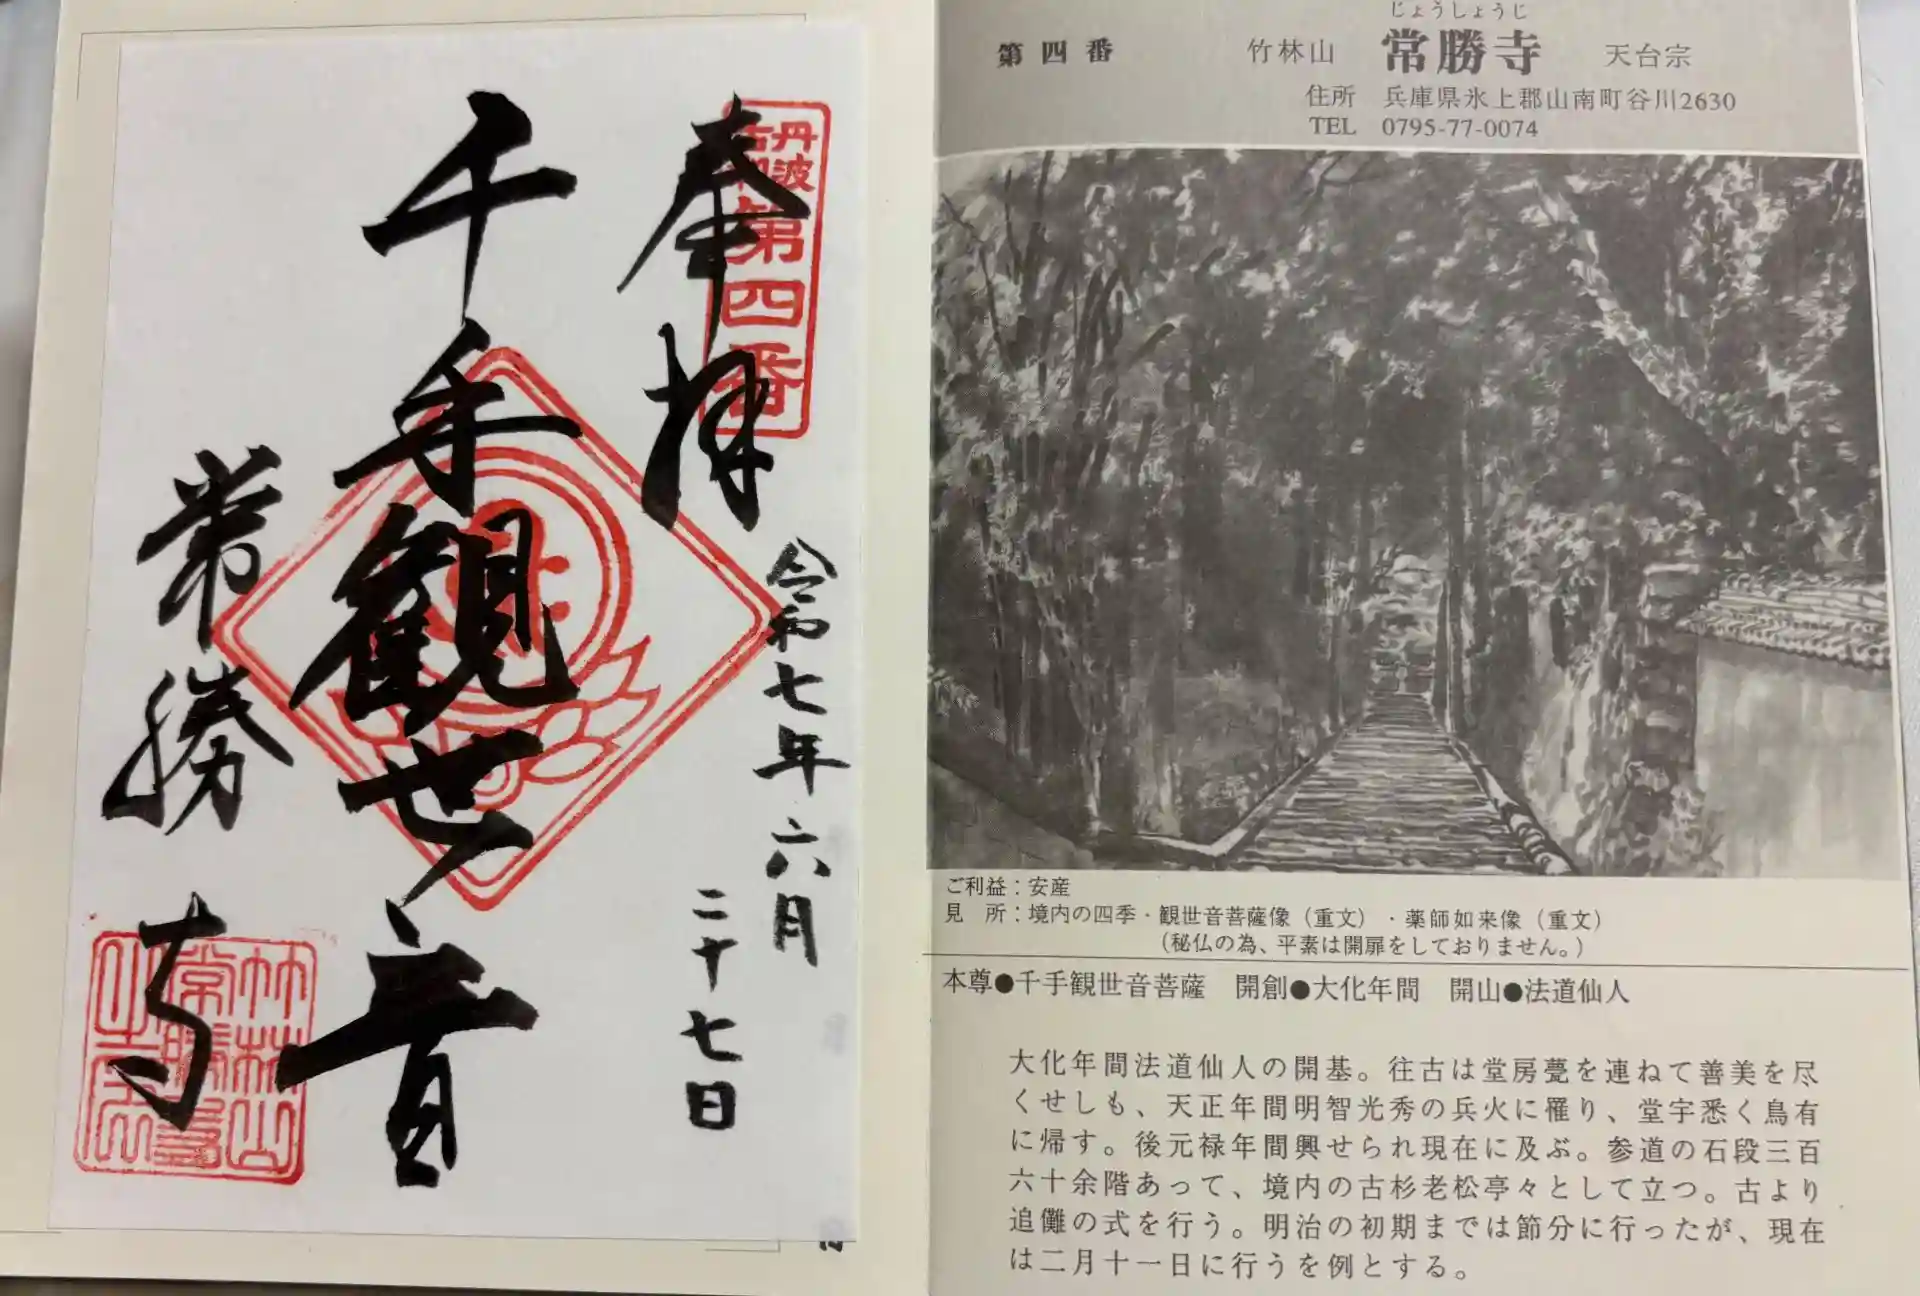 奉拝
丹波
古刹
第四番
令和七年六月
二十七日
千手観世音
常勝寺
竹林山
常勝寺
じょうしょうじ
第四番 竹林山 常勝寺 天台宗
住所 兵庫県氷上郡山南町谷川2630
TEL 0795-77-0074
ご利益：安産
見　所：境内の四季・観世音菩薩像（重文）・薬師如来像（重文）
（秘仏の為、平素は開扉をしておりません。）
本尊●千手観世音菩薩　開創●大化年間　開山●法道仙人
大化年間法道仙人の開基。往古は堂房甍を連ねて善美を尽
くせしも、天正年間明智光秀の兵火に罹り、堂宇悉く烏有
に帰す。後元禄年間興せられ現在に及ぶ。参道の石段三百
六十余階あって、境内の古杉老松亭々として立つ。古より
追儺の式を行う。明治の初期までは節分に行ったが、現在
は二月十一日に行うを例とする。